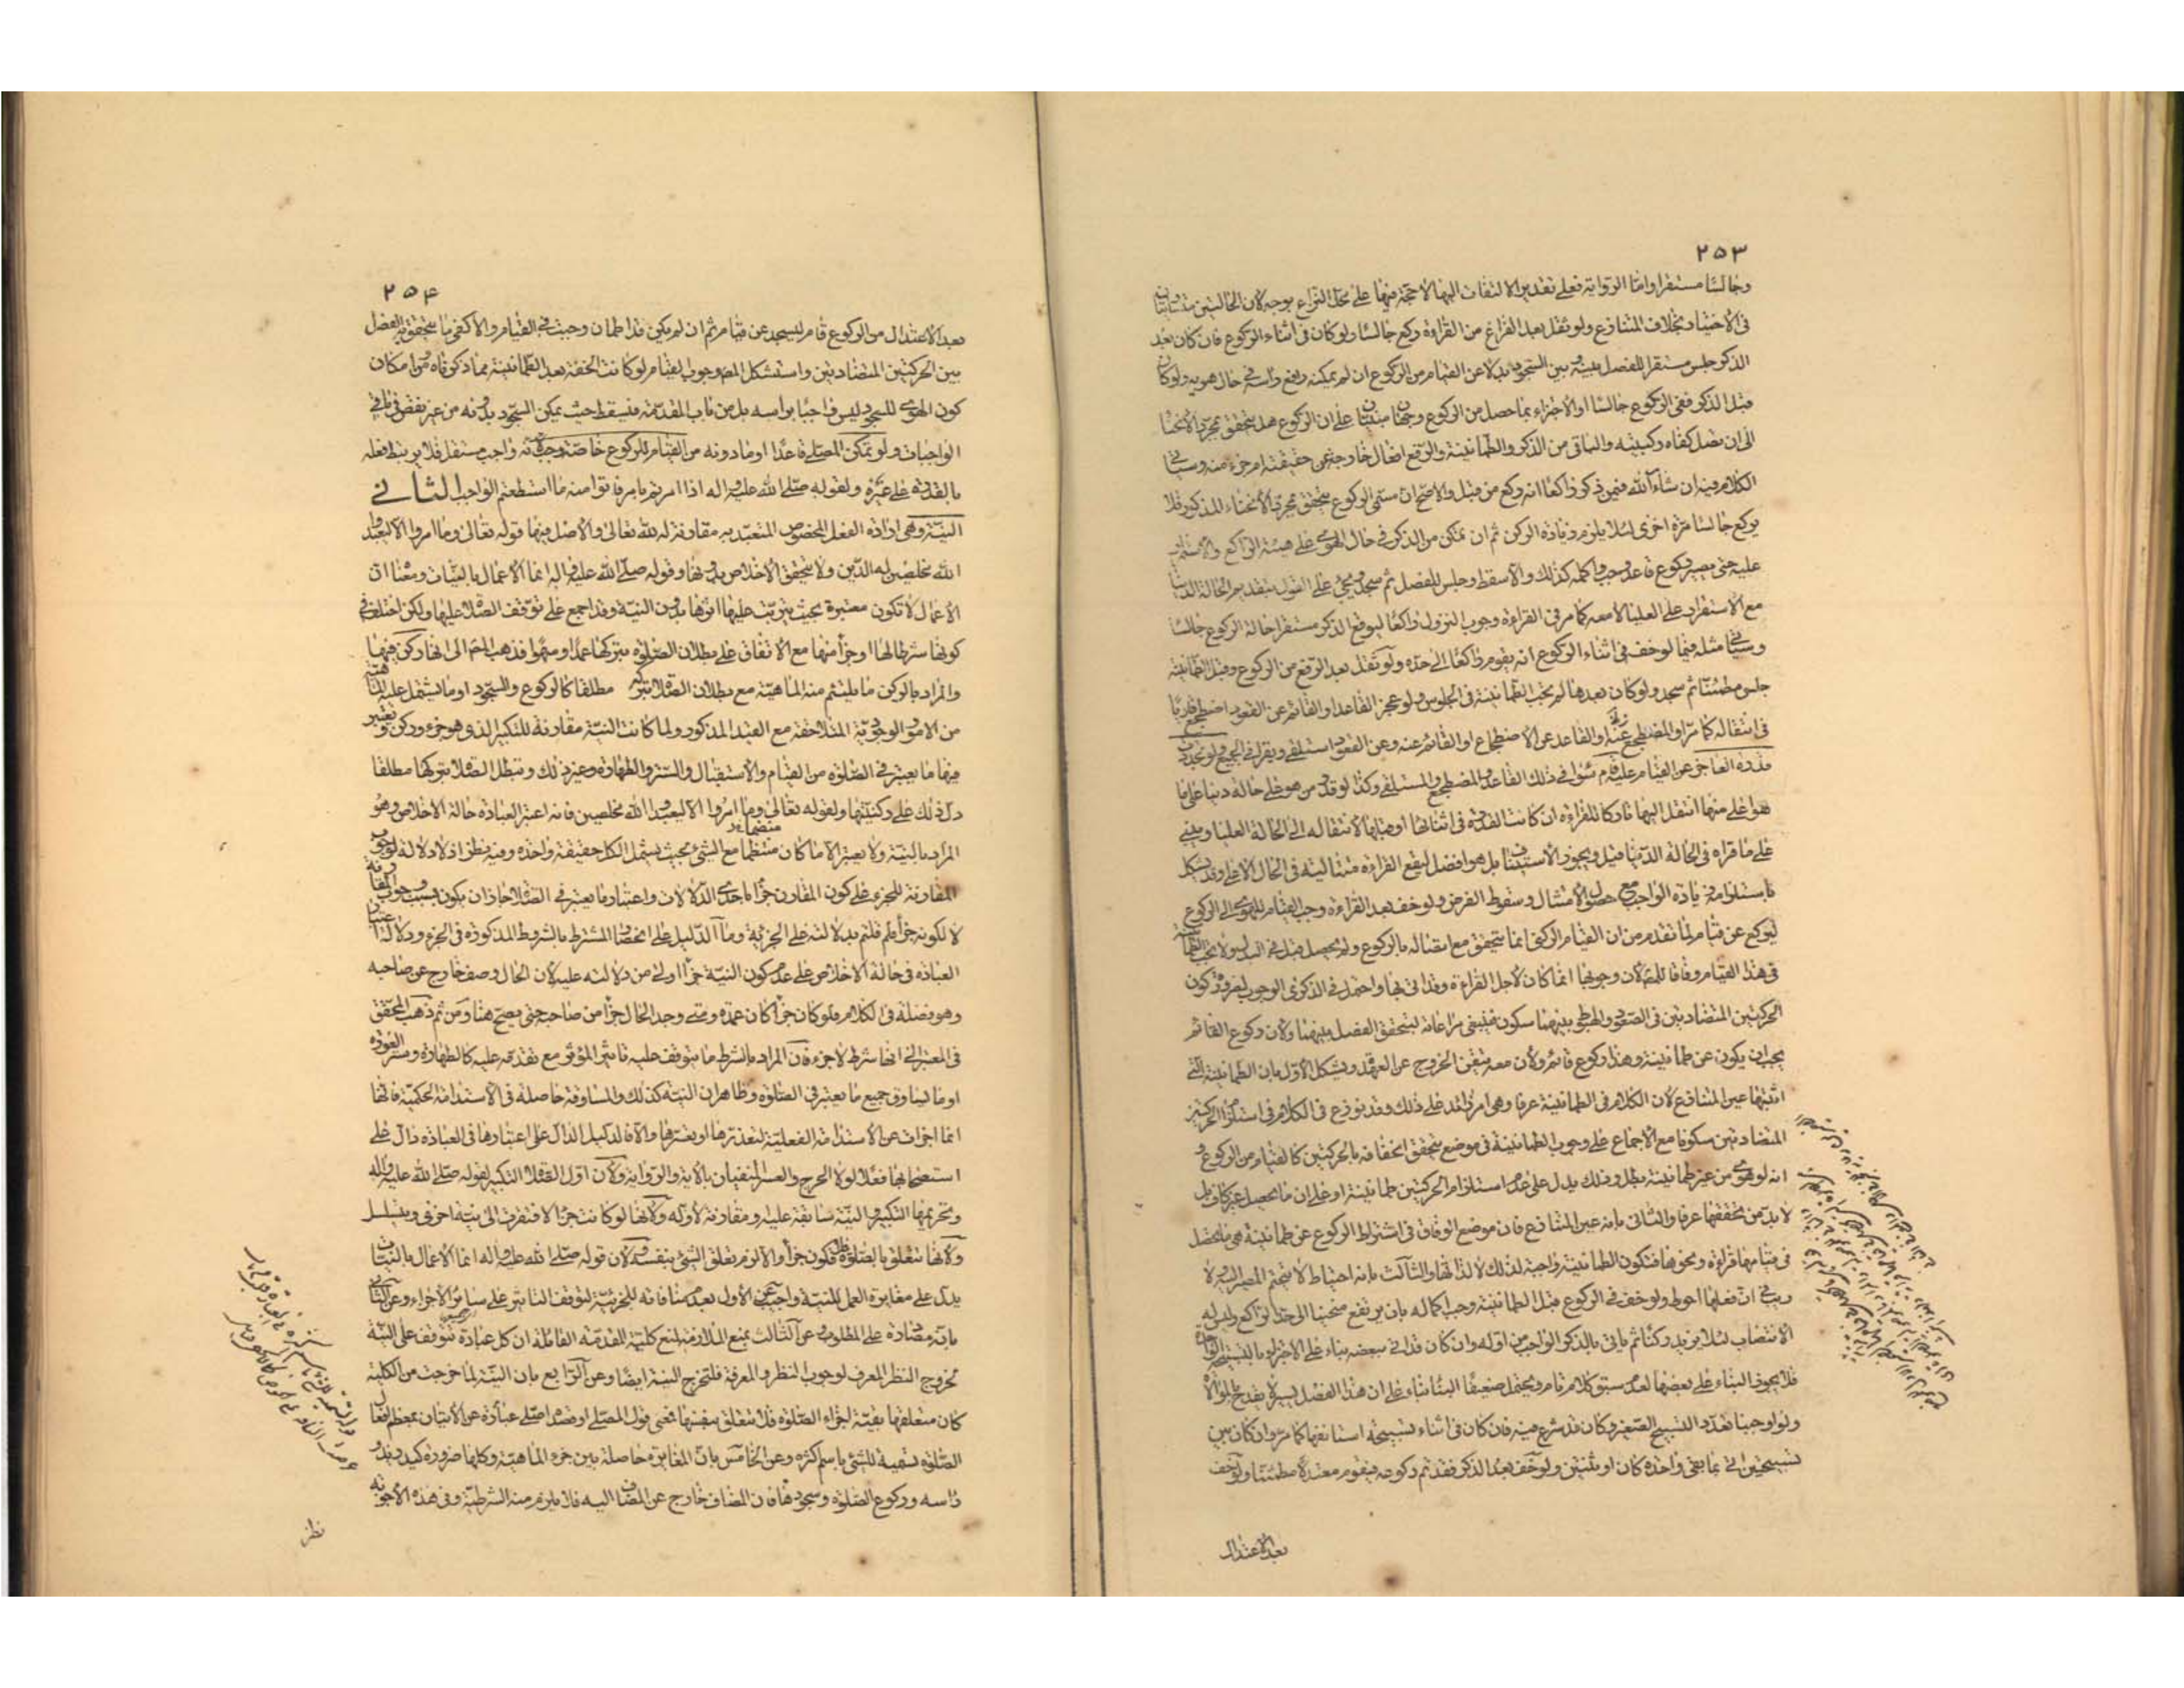 ٢٥٣
وجالسا مستقرا واما الرواية فعلى تقدير الالتفات اليها لا حجة فيها على محل النزاع بوجه لان الحالتين متساويتان
فى الاختيار بخلاف المتنازع ولو ثقل بعد الفراغ من القراءة ركع جالسا ولو كان فى اثناء الركوع فان كان بعد
الذكر جلس مستقرا للفصل بينه وبين السجود بدلا عن القيام من الركوع ان لم يمكنه رفع راسه فى حال هويه ولو كان
قبل الذكر ففى الركوع جالسا او الاجتزاء بما حصل من الركوع وجهان مبنيان على ان الركوع هل يتحقق بمجرد الانحنا
الى ان تصل كفاه ركبتيه والباقى من الذكر والطمانينة والرفع افعال خارجة عن حقيقته ام جزء منه وسياتى
الكلام فيه ان شاء الله فيمن ذكر راكعا انه ركع من قبل والاصح ان مسمى الركوع يتحقق بمجرد الانحناء المذكور فلا
يركع جالسا مرة اخرى لئلا يلزم زيادة الركن ثم ان تمكن من الذكر فى حال الهوى على هيئة الراكع والاستمرار
عليه حتى يصير كركوع قاعد وجب واكمله كذلك والا سقط وجلس للفصل ثم سجد ويجئ على القول بتقديم الحالة الدنيا
مع الاستقرار على العليا لا معه كما مر فى القراءة وجوب النزول راكعا ليوقع الذكر مستقرا حالة الركوع جالسا
وسياتى مثله فيما لو خف فى اثناء الركوع انه يقوم راكعا الى حده ولو ثقل بعد الرفع من الركوع وقبل الطمانينة
جلس مطمئنا ثم سجد ولو كان بعدها لم يجب الطمانينة فى الجلوس ولو عجز القاعد او القائم عن القعود اضطجع قاريا
فى انتقاله كما مر او المضطجع عنه والقاعد عن الاضطجاع او القائم عنه وعن القعود استلقى ويقرا فى الجميع ولو تجددت
قدرة العاجز عن القيام عليه قام سواء فى ذلك القاعد والمضطجع والمستلقى وكذا لو قدر من هو على حالة دنيا على ما
هو اعلى منها انتقل اليها تاركا للقراءة ان كانت القدرة فى اثنائها او قبلها لانتقاله الى الحالة العليا ويبنى
على ما قراه فى الحالة الدنيا قيل ويجوز الاستيناف بل هو افضل ليقع القراءة متتالية فى الحال الاعلى وقد يشكل
باستلزامه زيادة الواجب مع حصول الامتثال وسقوط الفرض ولو خف بعد القراءة وجب القيام للهوى الى الركوع
ليركع عن قيام لما تقدم من ان القيام الركنى انما يتحقق مع اتصاله بالركوع ولم يحصل قبل فى البدل ولا يجب الطمانينة
فى هذا القيام وفاقا للمص لان وجوبها انما كان لاجل القراءة وقد اتى بها واحتمل فى الذكرى الوجوب لضرورة كون
الحركتين المتضادتين فى الصعود والهبوط بينهما سكون فينبغى مراعاته ليتحقق الفصل بينهما ولان ركوع القائم
يجب ان يكون عن طمانينة وهذا ركوع قائم ولان معه يتيقن الخروج عن العهدة ويشكل الاول بان الطمانينة التى
اثبتها عين المتنازع لان الكلام فى الطمانينة عرفا وهى امر زائد على ذلك وقد نوزع فى الكلام فى استلزام الحركتين
المتضادتين سكونا مع الاجماع على وجوب الطمانينة فى موضع يتحقق اتحقاقه بالحركتين كالقيام من الركوع و
انه لو هوى من غير طمانينة بطل وذلك يدل على عدم استلزام الحركتين طمانينة او على ان ما يحصل غير كاف بل
لابد من تحققها عرفا والثانى بانه عين المتنازع فان موضع الوفاق فى اشتراط الركوع عن طمانينة هى ما يحصل
فى قيامها قراءة ونحوها فتكون الطمانينة واجبة لذلك لا لذاتها والثالث بانه احتياط لا يتحتم المصير اليه ولا
ريب فى ان فعلها احوط ولو خف فى الركوع قبل الطمانينة وجب اكماله بان يرتفع منحنيا الى حد الراكع وليس له
الانتصاب لئلا يزيد ركنا ثم ياتى بالذكر الواجب من اوله وان كان قد اتى ببعضه بناء على الاجتزاء بالتسبيحة الواحدة
فلا يجوز البناء على بعضها لعدم سبق كلام تام ويحتمل ضعيفا البناء بناء على ان هذا الفصل يسير لا يقدح بالموالاة
ولو اوجبنا تعدد التسبيح الصغير وكان قد شرع فيه فان كان فى اثناء تسبيحة استانفها كما مر وان كان بين
تسبيحتين اتى بما بقى واحدة كان او ثنتين ولو خف بعد الذكر فقد تم ركوعه فيقوم معتدلا مطمئنا ولو خف
بعد الاعتدال
٢٥٤
بعد الاعتدال من الركوع قام ليسجد عن قيام ثم ان لم يكن قد اطمان وجبت فى القيام والا كفى ما يتحقق به الفصل
بين الحركتين المتضادتين واستشكل المص وجوب القيام لو كانت الخفة بعد الطمانينة مما ذكرناه ومن امكان
كون الهوى للسجود ليس واجبا براسه بل من باب المقدمة فيسقط حيث يمكن السجود بدونه من غير نقض فى باقى
الواجبات ولو تمكن المصلى قاعدا او ما دونه من القيام للركوع خاصة وجب لانه واجب مستقل فلا يرتبط فعله
بالقدرة على غيره ولقوله صلى الله عليه واله اذا امرتكم بامر فاتوا منه ما استطعتم الواجب الثانى
النية وهى ارادة الفعل المخصوص المتعبد به مقارنة له لله تعالى والاصل فيها قوله تعالى وما امروا الا ليعبدوا
الله مخلصين له الدين ولا يتحقق الاخلاص بدونها وقوله صلى الله عليه واله انما الاعمال بالنيات ومعناه ان
الاعمال لا تكون معتبرة بحيث يترتب عليها اثرها بدون النية وقد اجمع على توقف الصلاة عليها ولكن اختلف فى
كونها شرطا لها او جزأ منها مع الاتفاق على بطلان الصلوة بتركها عمدا وسهوا فذهب المص الى انها ركن فيها
والمراد بالركن ما يلتئم منه الماهية مع بطلان الصلاة بتركه مطلقا كالركوع والسجود او ما تشتمل عليه الماهية
من الامور الوجودية المتلاحقة مع القيد المذكور ولما كانت النية مقارنة للتكبير الذى هو جزء وركن ويعتبر
فيها ما يعتبر فى الصلوة من القيام والاستقبال والستر والطهارة وغير ذلك وتبطل الصلاة بتركها مطلقا
دل ذلك على ركنيتها ولقوله تعالى وما امروا الا ليعبدوا الله مخلصين فانه اعتبر العبادة حالة الاخلاص وهو
المراد بالنية ولا يعتبر الا ما كان منتظما مع الشئ بحيث يشمل الكل حقيقة واحدة وفيه نظر اذ لا دلالة لوجوب
المقارنة للجزء على كون المقارن جزأ باحدى الدلالات واعتبار ما يعتبر فى الصلاة جاز ان يكون بسبب وجوب المقارنة
لا لكونه جزأ فلم قلتم بدلالته على الجزئية وما الدليل على انحصار المشترط بالشروط المذكورة فى الجزء ودلالة اعتبار
العبادة فى حالة الاخلاص على عدم كون النية جزأ اولى من دلالته عليه لان الحال وصف خارج عن صاحبه
وهو فضلة فى الكلام فلو كان جزأ كان عمدة ومتى وجد الحال جزأ من صاحبه حتى يصح هنا ومن ثم ذهب المحقق
فى المعتبر الى انها شرط لا جزء فان المراد بالشرط ما يتوقف عليه تاثير المؤثر مع تقدمه عليه كالطهارة وستر العورة
او ما يساوق جميع ما يعتبر فى الصلوة وظاهر ان النية كذلك والمساوقة حاصلة فى الاستدامة الحكمية فانها
انما اجزات عن الاستدامة الفعلية لتعذرها او تعسرها والا فالدليل الدال على اعتبارها فى العبادة دال على
استصحابها فعلا لولا الحرج والعسر المنفيان بالاية والرواية ولان اول الصلاة التكبير لقوله صلى الله عليه واله
وتحريمها التكبير والنية سابقة عليه ومقارنة لاوله ولانها لو كانت جزأ لافتقرت الى نية اخرى ويتسلسل
ولانها تتعلق بالصلوة فلا تكون جزأ والا لزم تعلق الشئ بنفسه ولان قوله صلى الله عليه واله انما الاعمال بالنيات
يدل على مغايرة العمل للنية واجيب عن الاول
بانه مصادرة على المطلوب وعن الثالث بمنع الملازمة لمنع كلية المقدمة القائلة ان كل عبادة تتوقف على النية
لخروج النظر المعرف لوجوب النظر والمعرفة فلتخرج النية ايضا وعن الرابع بان النية لما خرجت من الكلية
كان متعلقها بقية اجزاء الصلوة فلا تتعلق بنفسها فمعنى قول المصلى اصلى عبارة عن الاتيان بمعظم افعال
الصلوة تسمية للشئ باسم اكثره وعن الخامس بان المغايرة حاصلة بين جزء الماهية وكلها ضرورة كيد زيد و
راسه وركوع الصلوة وسجودها فان المضاف خارج عن المضاف اليه فلا يلزم منه الشرطية وفى هذه الاجوبة
نظر